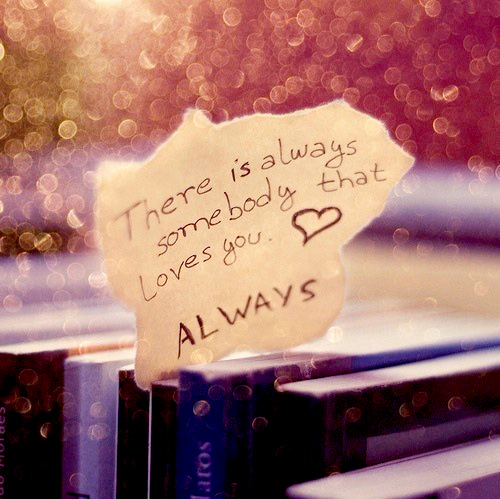 There is always
somebody that
Loves you. ♡
ALWAYS